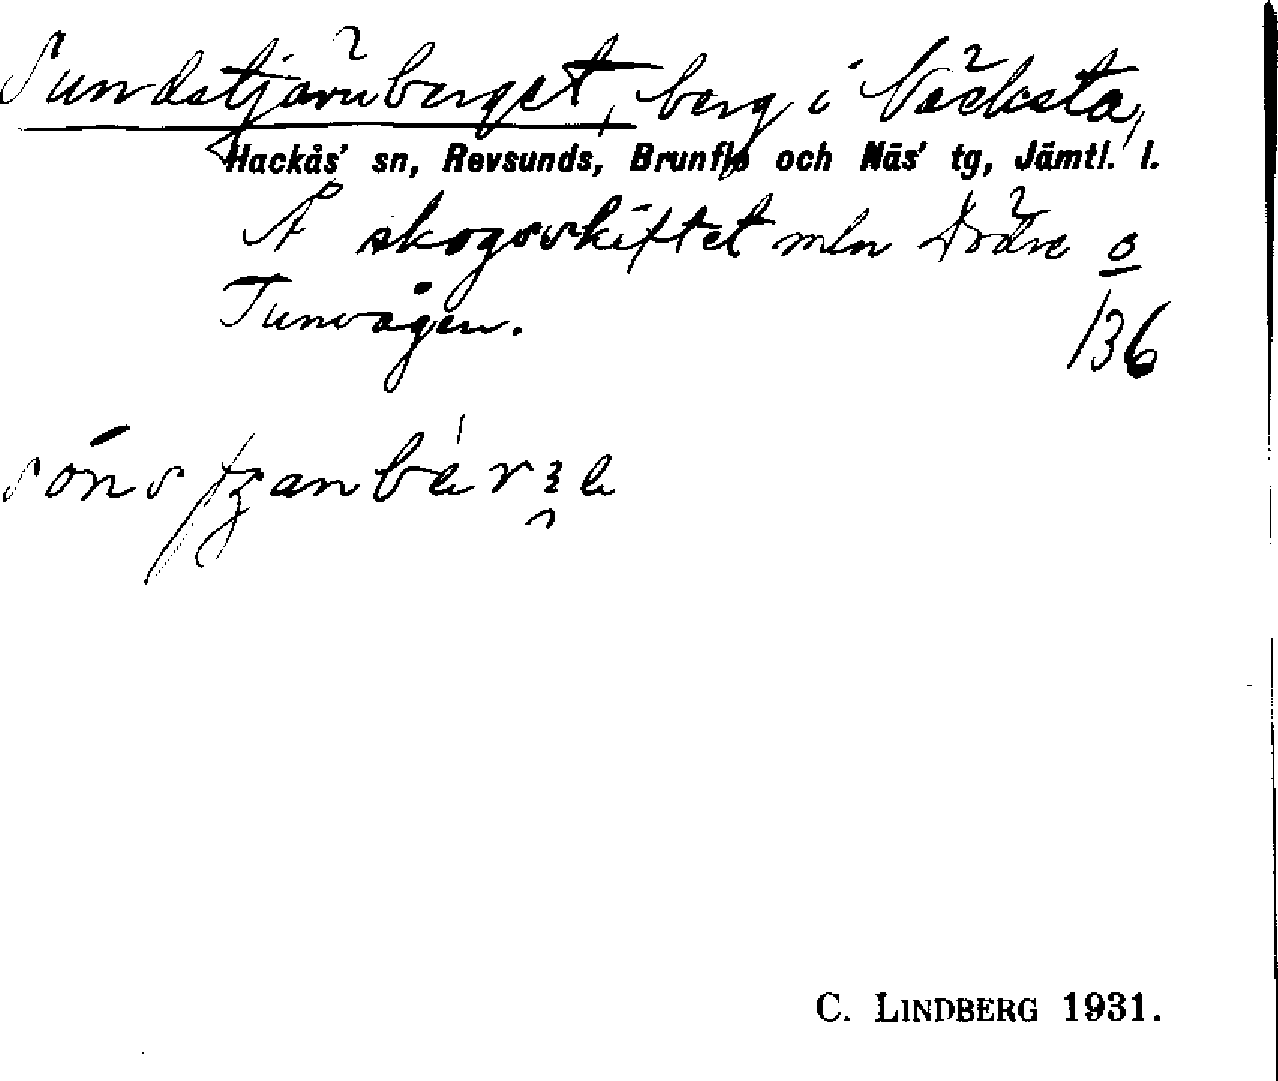 Sundstjärnberget, berg i Väcksta,
Hackås' sn, Revsunds, Brunflo och Näs' tg, Jämtl. l.
Å skogsskiftet mln Dräve o
Tunvågen. 136
C. LINDBERG 1931.